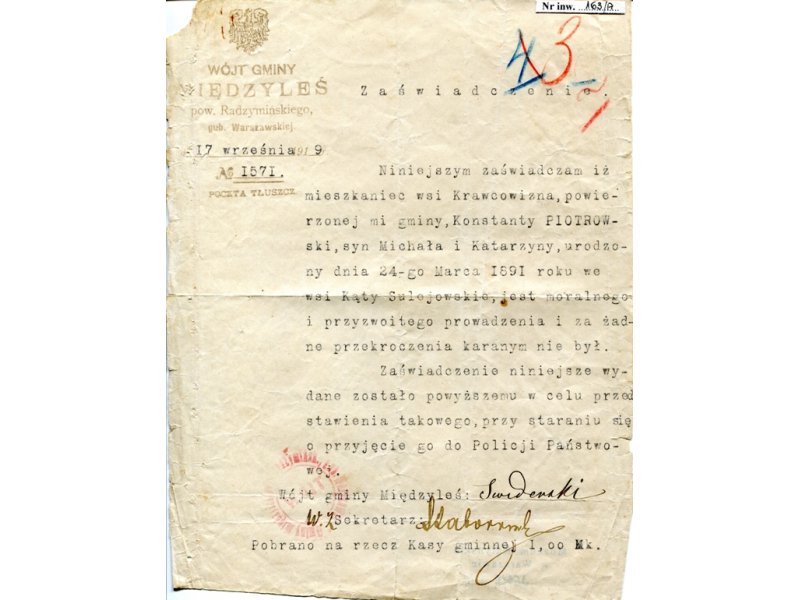 Nr inw. 163/A
4 3
WÓJT GMINY
MIĘDZYLEŚ
pow. Radzymińskiego,
gub. Warszawskiej.
17 września 1919
№ 1571.
POCZTA TŁUSZCZ
Zaświadczenie.
Niniejszym zaświadczam iż
mieszkaniec wsi Krawcowizna, powie-
rzonej mi gminy, Konstanty PIOTROW-
ski, syn Michała i Katarzyny, urodzo-
ny dnia 24-go Marca 1891 roku we
wsi Kąty Sulejowskie, jest moralnego
i przyzwoitego prowadzenia i za żad-
ne przekroczenia karanym nie był.
Zaświadczenie niniejsze wy-
dane zostało powyższemu w celu przed
stawienia takowego, przy staraniu się
o przyjęcie go do Policji Państwo-
wej.
Wójt gminy Międzyleś: Swiderski
W. Z Sekretarz:
Pobrano na rzecz Kasy gminnej 1,oo Mk.